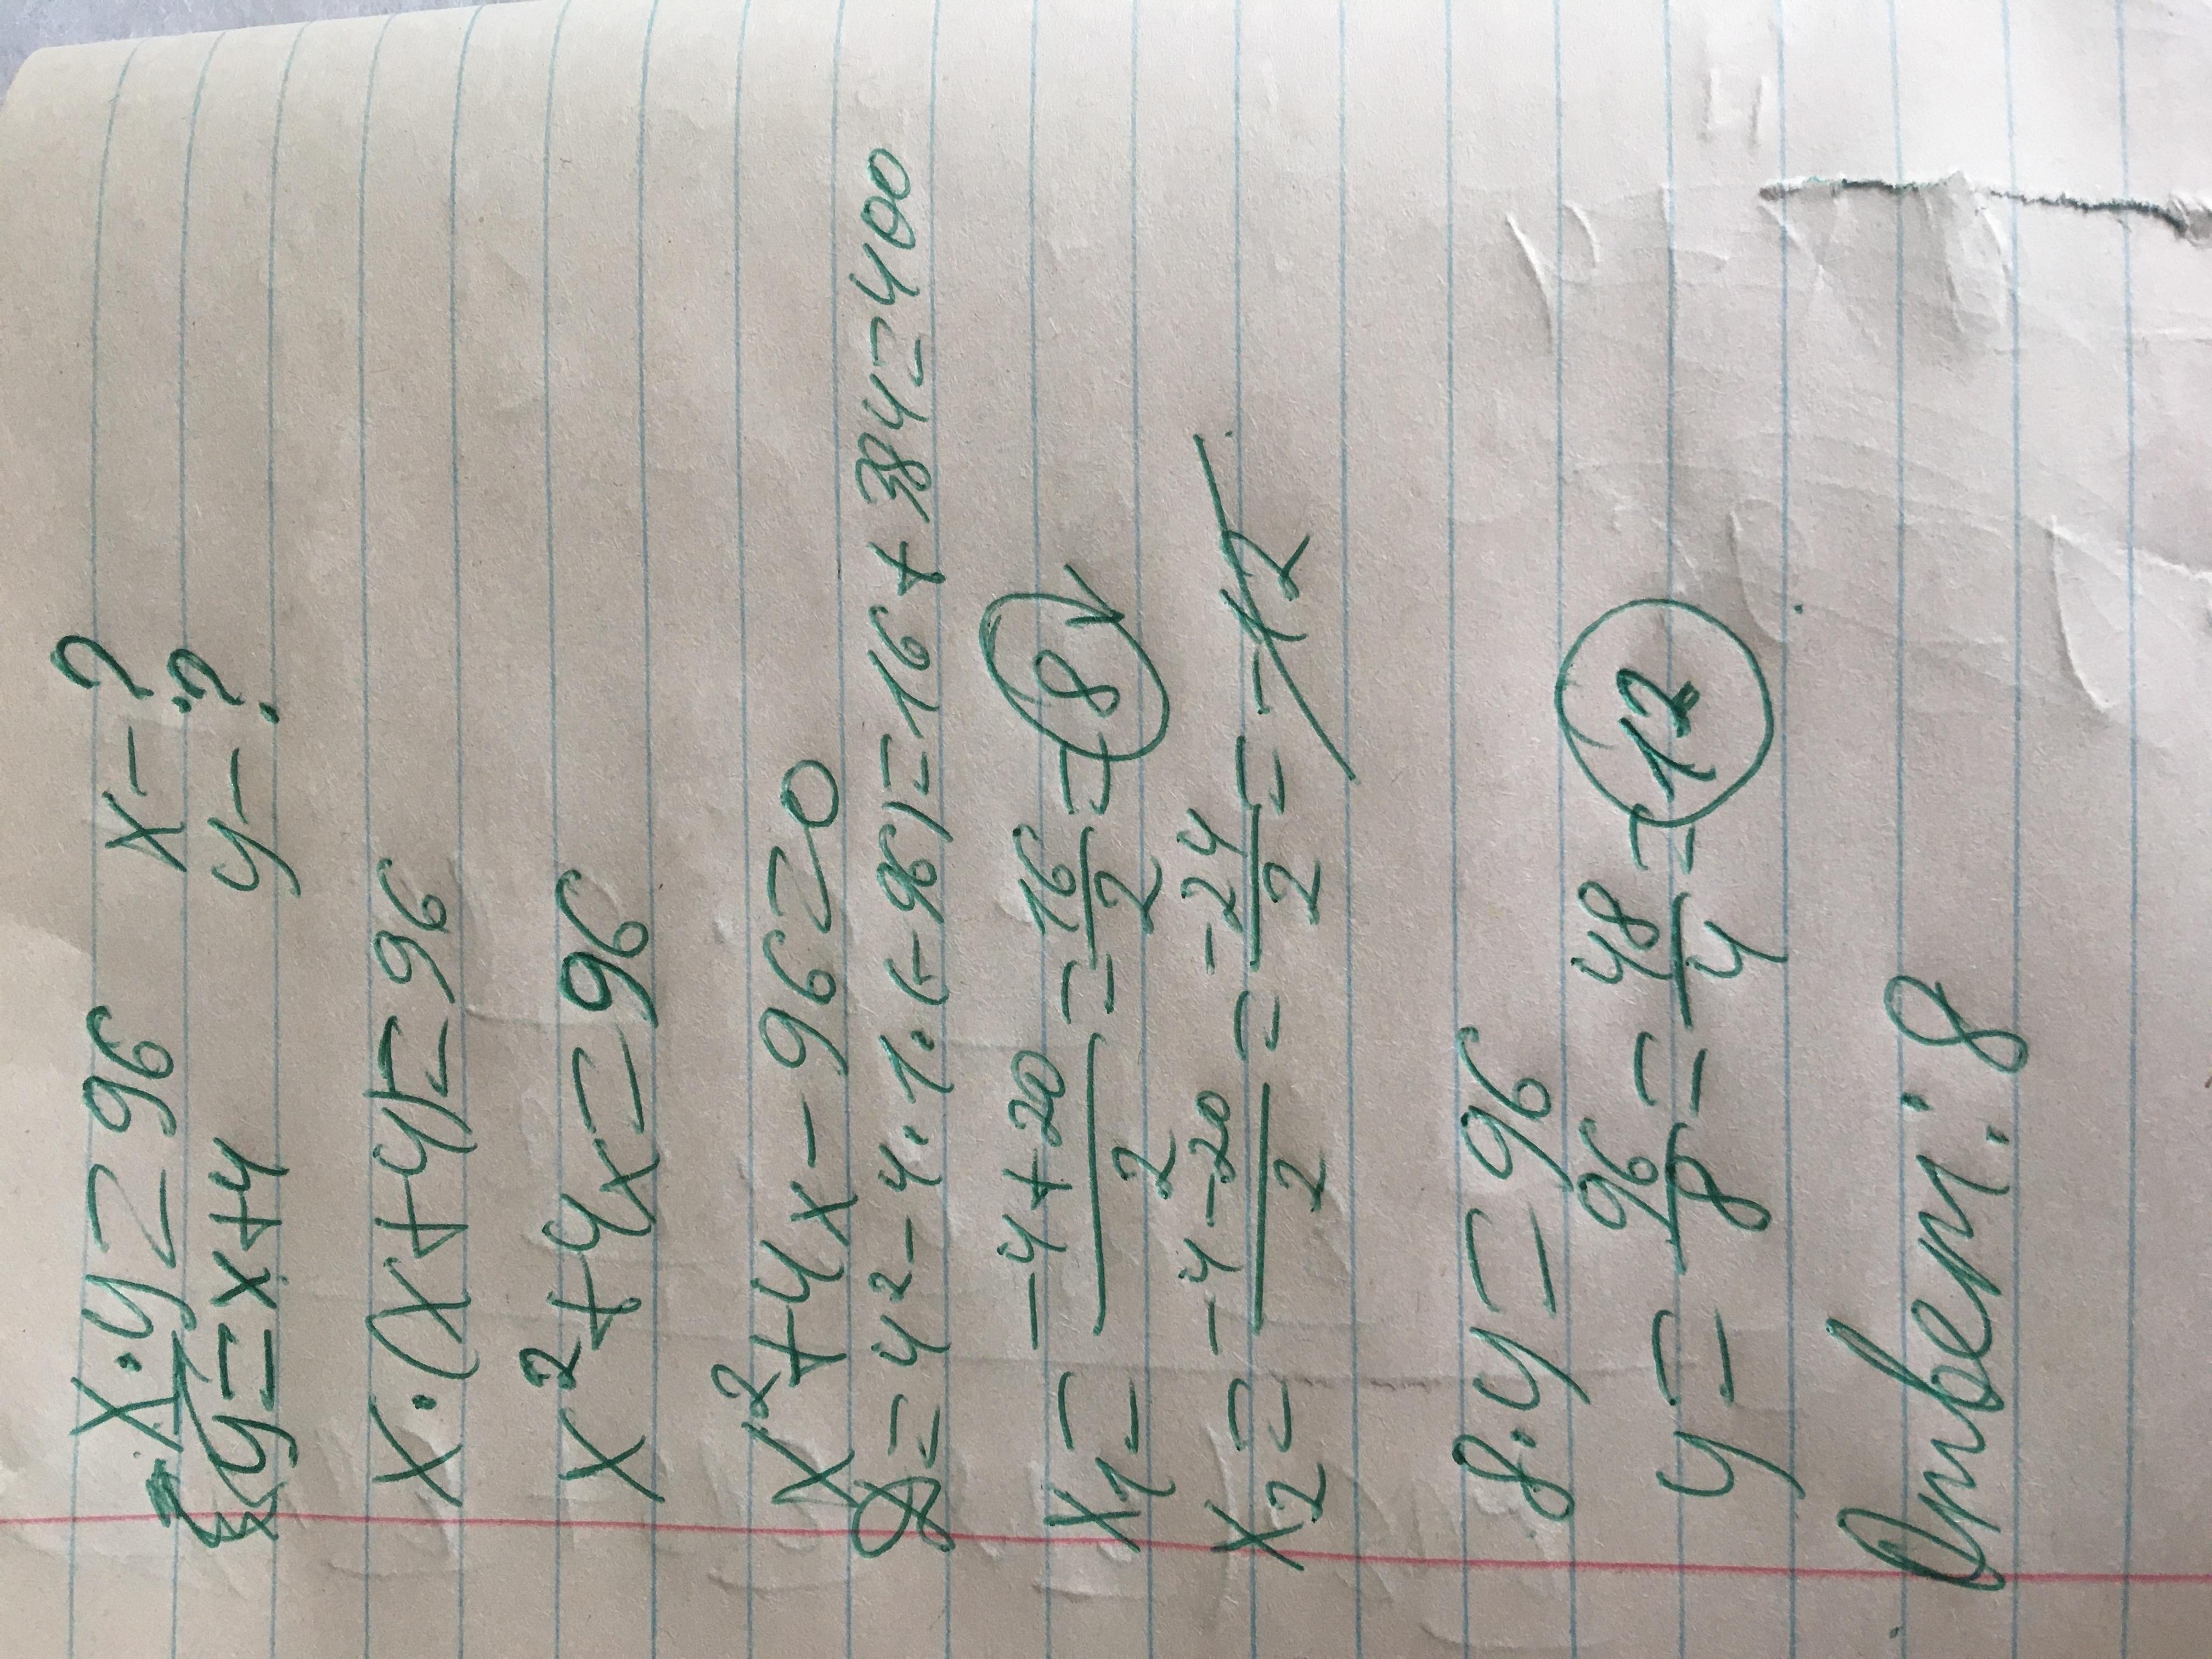 x·y=96 x-?
y=x+4 y-?
x·(x+4)=96
x²+4x=96
x²+4x-96=0
D=4²-4·1·(-96)=16+384=400
x₁=(-4+20)/2=16/2=8
x₂=(-4-20)/2=-24/2=-12
8·y=96
y=96/8=48/4=12
Ответ: 8